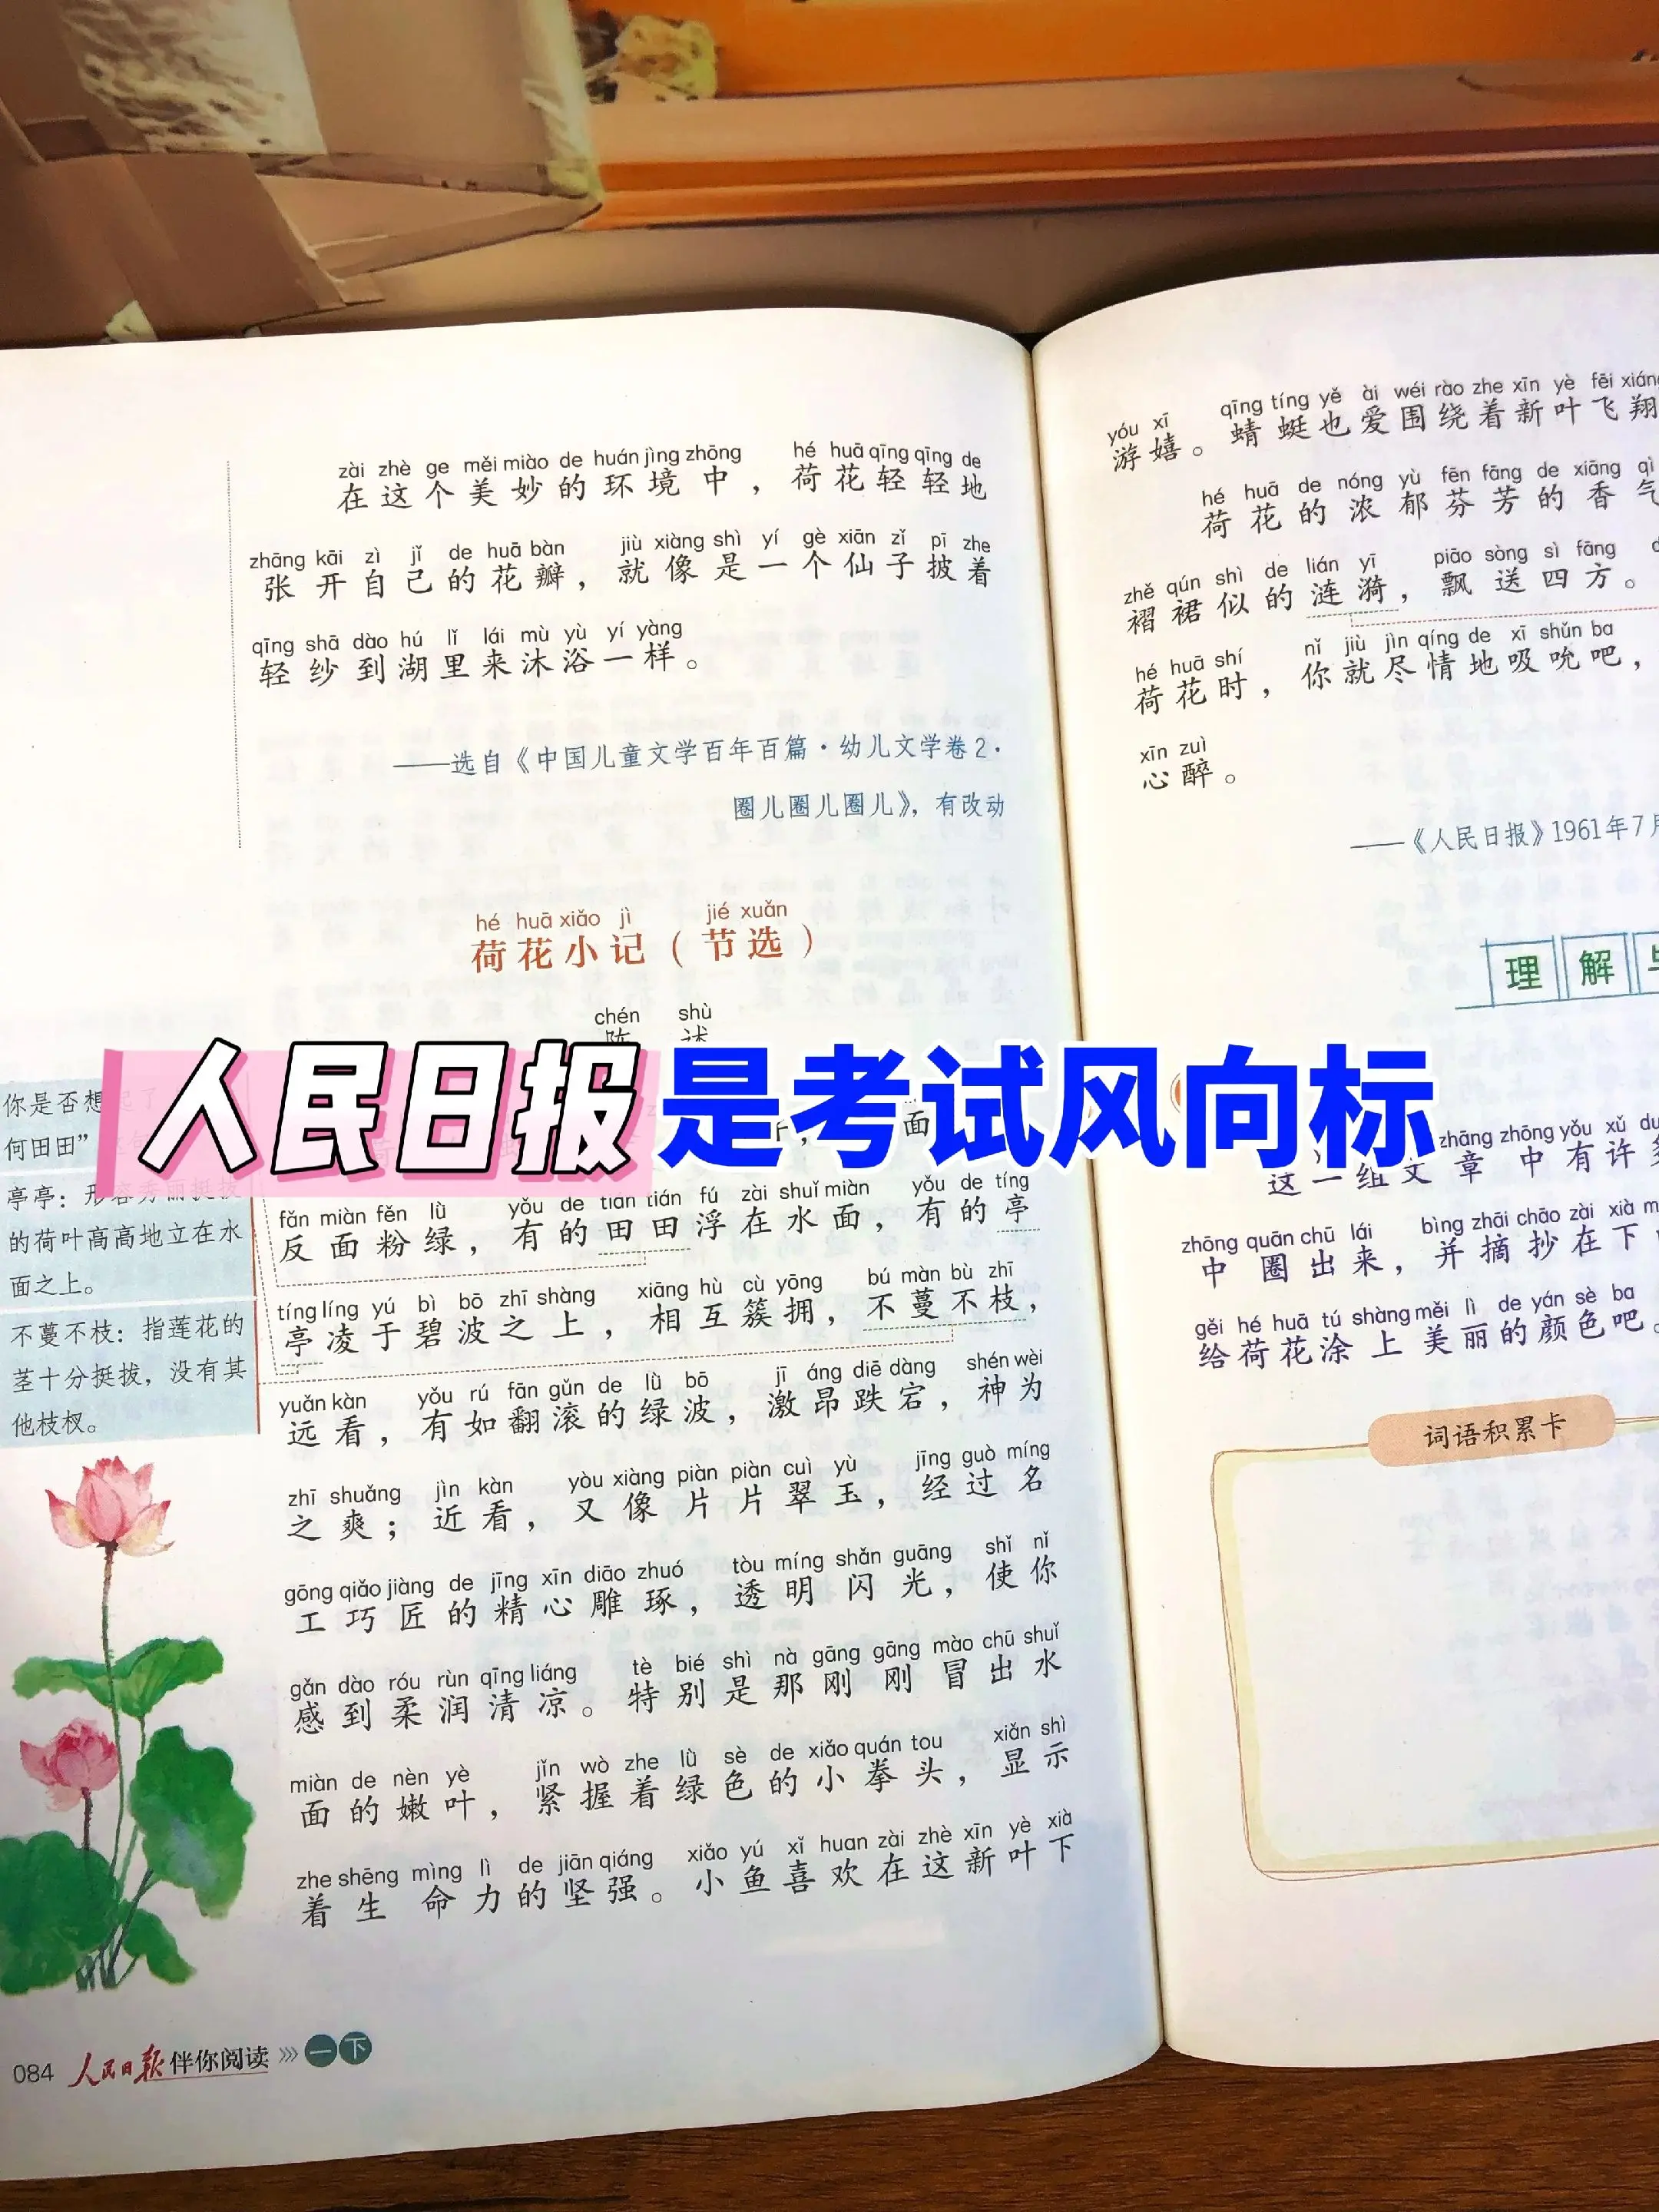 zài zhè ge měi miào de huán jìng zhōng hé huā qīng qīng de
在这个美妙的环境中，荷花轻轻地
zhāng kāi zì jǐ de huā bàn jiù xiàng shì yí gè xiān zǐ pī zhe
张开自己的花瓣，就像是一个仙子披着
qīng shā dào hú lǐ lái mù yù yí yàng
轻纱到湖里来沐浴一样。
——选自《中国儿童文学百年百篇·幼儿文学卷2·
圈儿圈儿圈儿》，有改动
hé huā xiǎo jì jié xuǎn
荷花小记（节选）
chén shù
陈 述
人民日报是考试风向标
你是否想起了
何田田”
亭亭：形容秀丽挺拔
的荷叶高高地立在水
面之上。
不蔓不枝：指莲花的
茎十分挺拔，没有其
他枝杈。
面
fǎn miàn fěn lǜ yǒu de tián tián fú zài shuǐ miàn yǒu de tíng
反面粉绿，有的田田浮在水面，有的亭
tíng líng yú bì bō zhī shàng xiāng hù cù yōng bú màn bù zhī
亭凌于碧波之上，相互簇拥，不蔓不枝，
yuǎn kàn yǒu rú fān gǔn de lǜ bō jī áng diē dàng shén wèi
远看，有如翻滚的绿波，激昂跌宕，神为
zhī shuǎng jìn kàn yòu xiàng piàn piàn cuì yù jīng guò míng
之爽；近看，又像片片翠玉，经过名
gōng qiǎo jiàng de jīng xīn diāo zhuó tòu míng shǎn guāng shǐ nǐ
工巧匠的精心雕琢，透明闪光，使你
gǎn dào róu rùn qīng liáng tè bié shì nà gāng gāng mào chū shuǐ
感到柔润清凉。特别是那刚刚冒出水
miàn de nèn yè jǐn wò zhe lǜ sè de xiǎo quán tou xiǎn shì
面的嫩叶，紧握着绿色的小拳头，显示
zhe shēng mìng lì de jiān qiáng xiǎo yú xǐ huan zài zhè xīn yè xià
着生命力的坚强。小鱼喜欢在这新叶下
084 人民日报 伴你阅读 》》》 一下
yóu xī qīng tíng yě ài wéi rào zhe xīn yè fēi xiáng
游嬉。蜻蜓也爱围绕着新叶飞翔
hé huā de nóng yù fēn fāng de xiāng qì
荷花的浓郁芬芳的香气
zhě qún shì de lián yī piāo sòng sì fāng
褶裙似的涟漪，飘送四方。
hé huā shí nǐ jiù jìn qíng de xī shǔn ba
荷花时，你就尽情地吸吮吧，
xīn zuì
心醉。
——《人民日报》1961年7月
理解
zhāng zhōng yǒu xǔ
这一组文章中有许
zhōng quān chū lái bìng zhāi chāo zài xià
中圈出来，并摘抄在下
gěi hé huā tú shàng měi lì de yán sè ba
给荷花涂上美丽的颜色吧。
词语积累卡